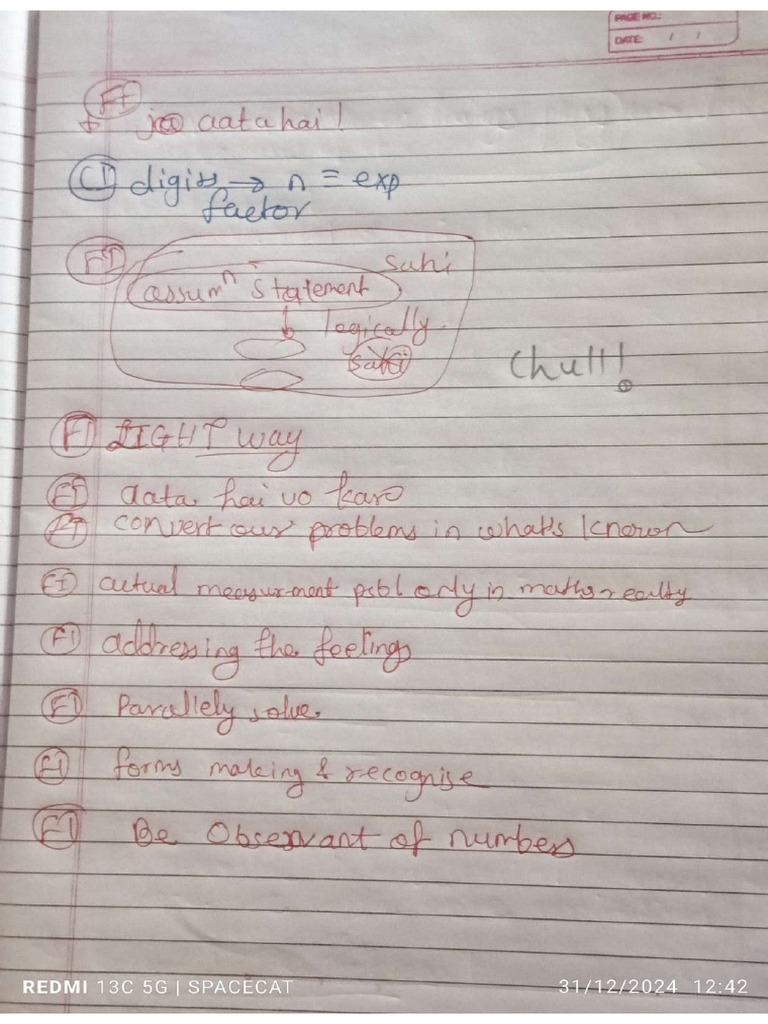 PAGE NO.:
DATE: / /
FI
joo aata hai!
CI digits → n = exp
factor
FI
sahi
assumⁿ statement
↓ logically
sahi
Chull!
FI LIGHT way
FI aata hai vo karo
FI convert our problems in what's known
FI actual measurment psbl only in maths reality
FI addressing the feelings
FI Parallely solve.
FI forms making & recognise
FI Be Observant of numbers
REDMI 13C 5G | SPACECAT
31/12/2024 12:42